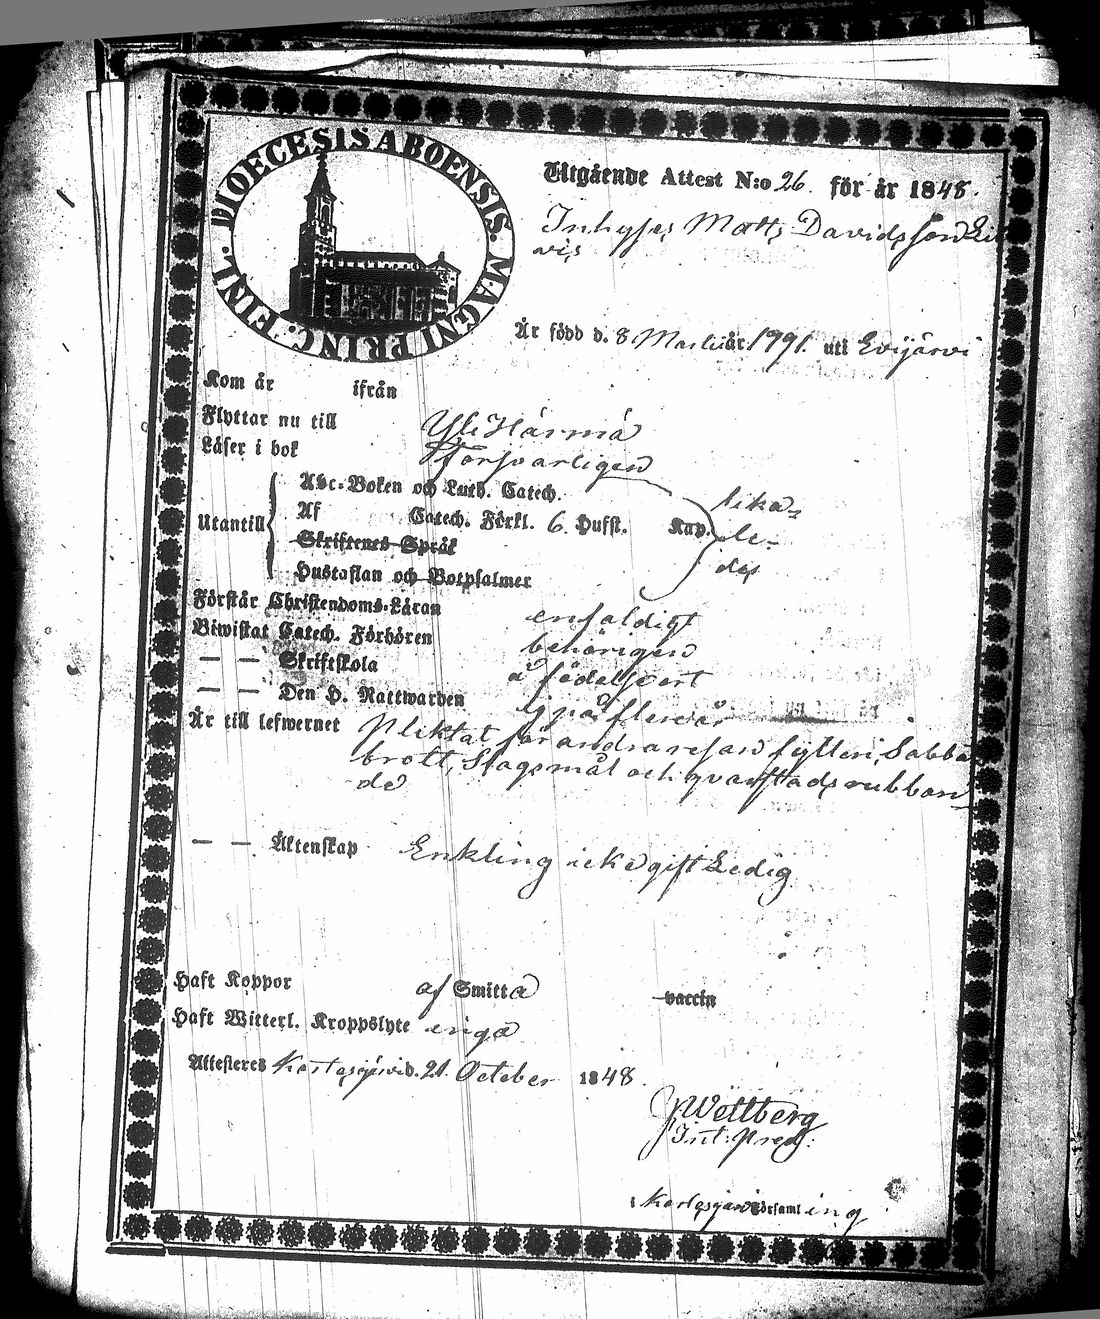 DIOECESIS ABOENSIS. MAGNI PRINC. FINL.
Utgående Attest N:o 26. för år 1848.
Inhyses Matts Davidsson
Är född d. 8 Martii år 1791. uti Evijärvi
Kom år ifrån
Flyttar nu till Yli Härmä
Läser i bok Försvarligen
Utantill
Abc-Boken och Luth. Catech.
Af Catech. Förkl. 6 Hufst. Kap.
Skriftenes Språk
Hustaflan och Botpsalmer
lika-
le-
des
Förstår Christendoms-Läran enfaldigt
Biwistat Catech. Förhören behörigen
— — Skriftskola å födelseort
— — Den H. Nattwarden ej på flere år
Är till lefwernet Pliktat för andra resan fylleri, Sabbats
brott, Slagsmål och qvarstads rubban
de
— — Äktenskap Enkling icke gift Ledig
Haft Koppor af Smitta vaccin
Haft Witterl. Kroppslyte inga
Attesteres Kortesjärvi d. 21 October 1848.
JWettberg
Int: Pred:
Kortesjärvi Församling